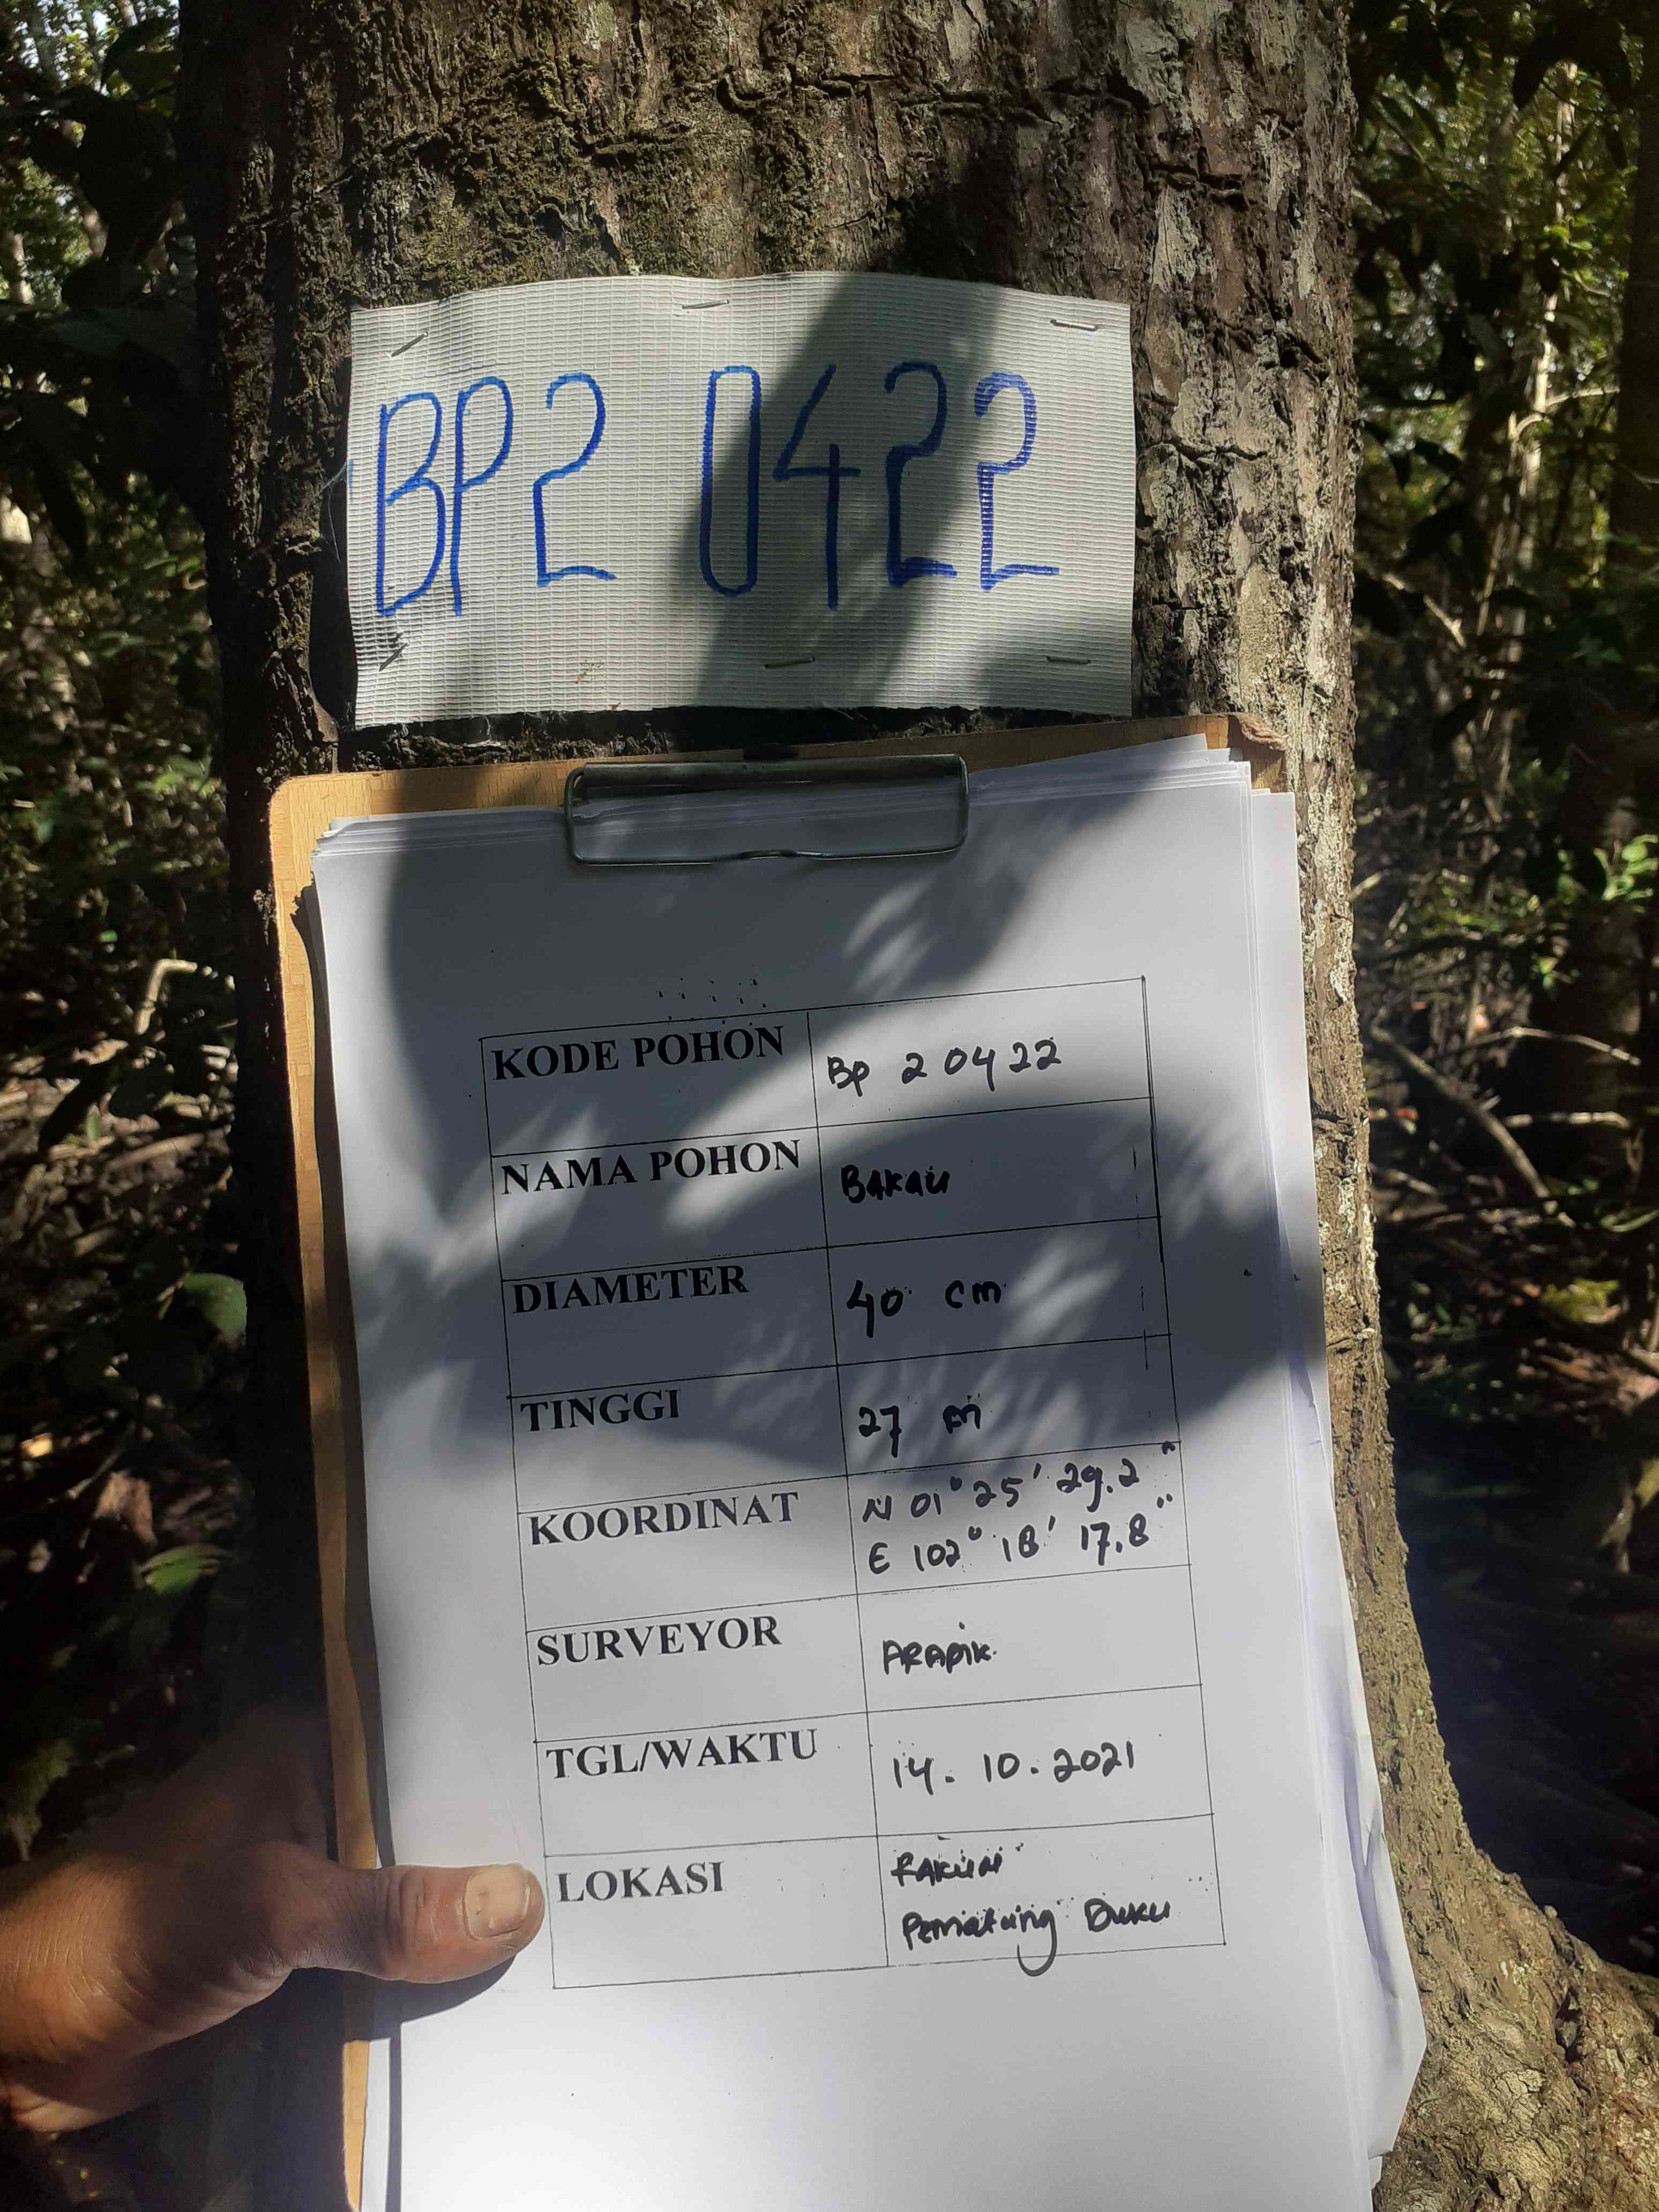 BP2 0422
KODE POHON Bp 2 0422
NAMA POHON BAKAU
DIAMETER 40 cm
TINGGI 27 m
KOORDINAT N 01° 25' 29.2"
E 102° 18' 17.8"
SURVEYOR ARAPIK
TGL/WAKTU 14. 10. 2021
LOKASI
Pematang Duku